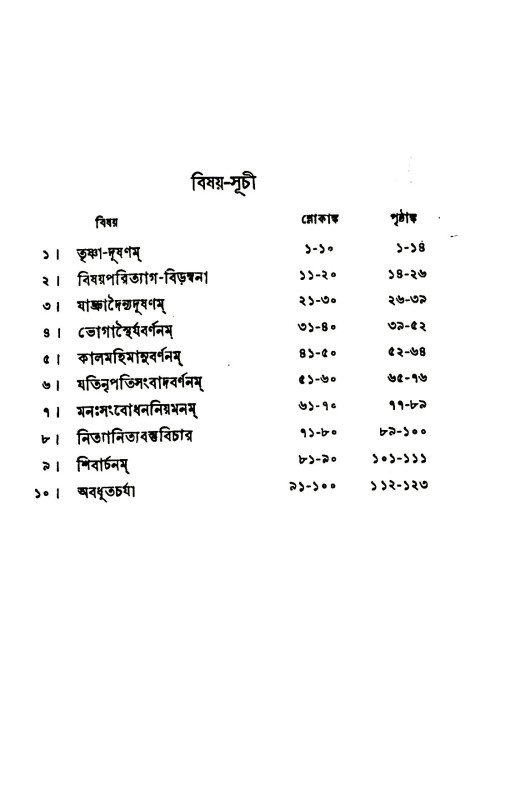 বিষয়-সূচী
বিষয় শ্লোকাঙ্ক পৃষ্ঠাঙ্ক
১। তৃষ্ণা-দূষণম্ ১-১০ ১-১৪
২। বিষয়পরিত্যাগ-বিড়ম্বনা ১১-২০ ১৪-২৬
৩। যাচ্ঞাদৈন্যদূষণম্ ২১-৩০ ২৬-৩৯
৪। ভোগাস্থৈর্যবর্ণনম্ ৩১-৪০ ৩৯-৫২
৫। কালমহিমানুবর্ণনম্ ৪১-৫০ ৫২-৬৪
৬। যতিনৃপতিসংবাদবর্ণনম্ ৫১-৬০ ৬৫-৭৬
৭। মনঃসংবোধননিয়মনম্ ৬১-৭০ ৭৭-৮৯
৮। নিত্যানিত্যবস্তুবিচার ৭১-৮০ ৮৯-১০০
৯। শিবার্চনম্ ৮১-৯০ ১০১-১১১
১০। অবধূতচর্যা ৯১-১০০ ১১২-১২৩